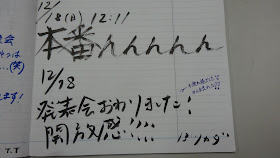 12/18(日) 12:11
本番んんんんん
12/18
発表会おわりました!
開放感!!!
会
(笑)
ます!
T.T